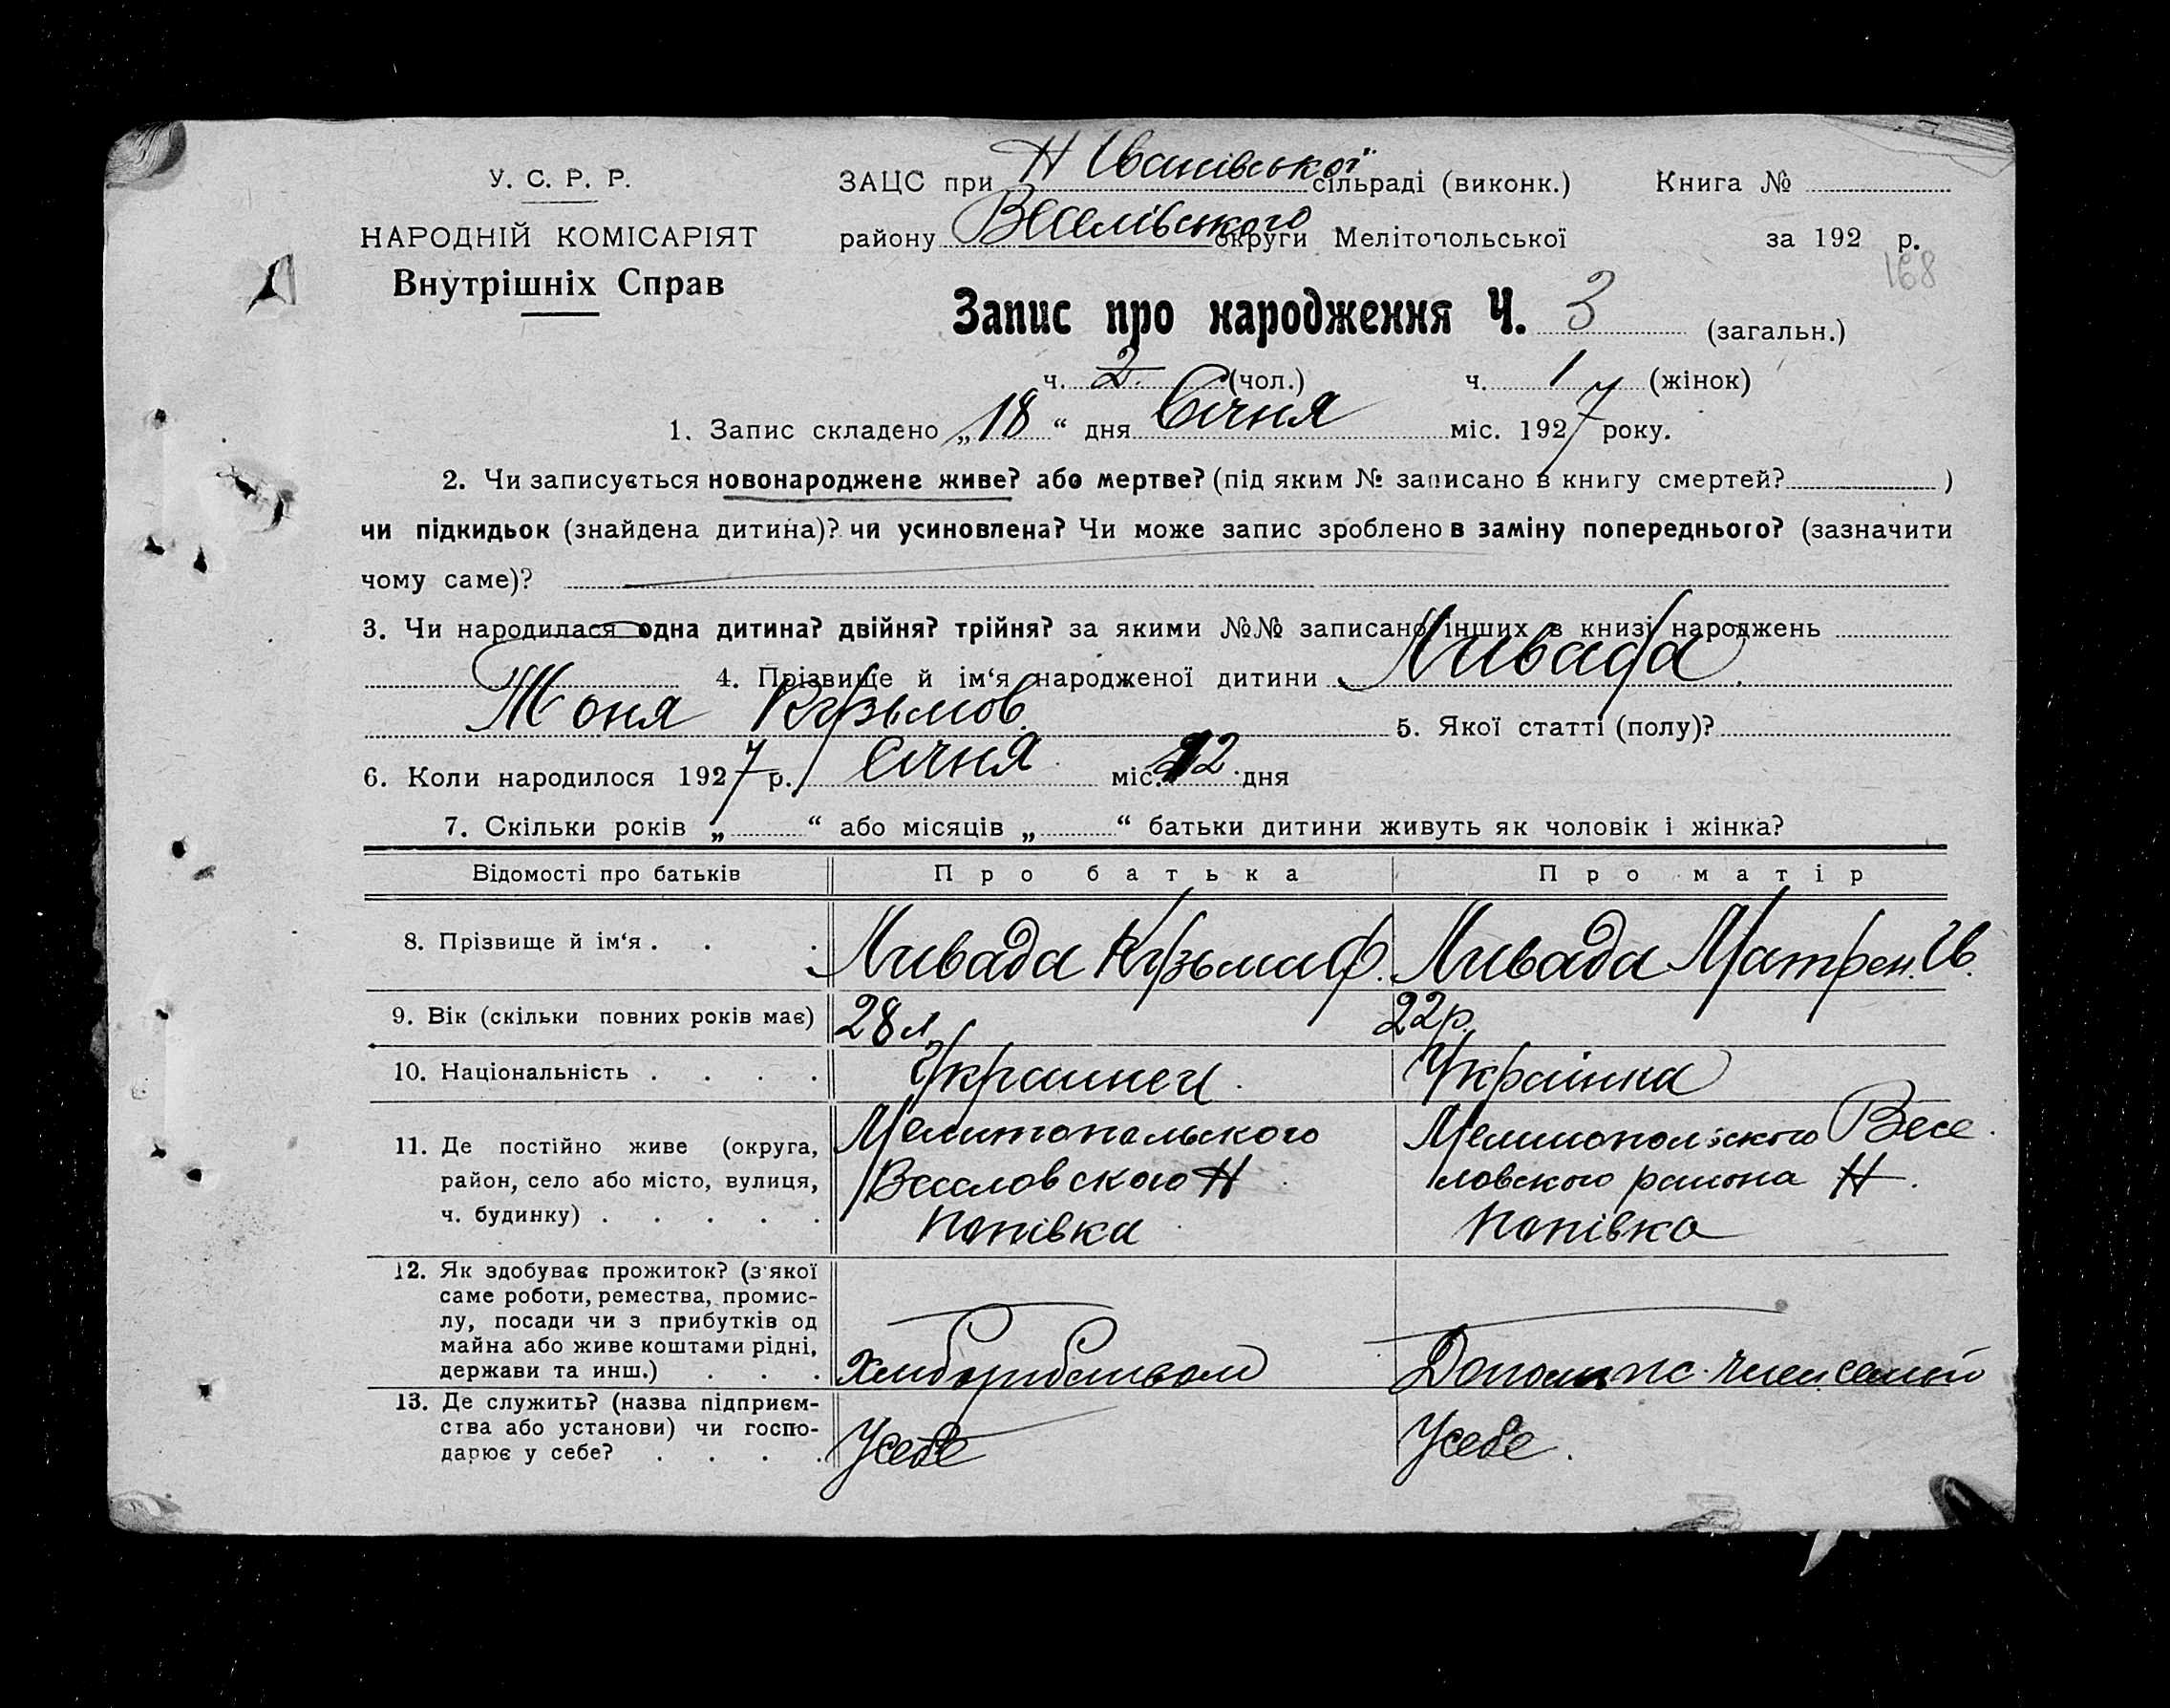 У. С. Р. Р.
НАРОДНІЙ КОМІСАРІЯТ
Внутрішніх Справ
ЗАЦС при Н Іванівської сільраді (виконк.) Книга №
району Веселівського округи Мелітопольської за 192 р.
168
Запис про народження Ч. 3 (загальн.)
ч. 2. (чол.) ч. 1 (жінок)
1. Запис складено „18“ дня Січня міс. 1927 року.
2. Чи записується новонароджене живе? або мертве? (під яким № записано в книгу смертей? )
чи підкидьок (знайдена дитина)? чи усиновлена? Чи може запис зроблено в заміну попереднього? (зазначити
чому саме)?
3. Чи народилася одна дитина? двійня? трійня? за якими №№ записано інших в книзі народжень
4. Прізвище й ім‘я народженої дитини Ливада
Тоня Кузьмов. 5. Якої статті (полу)?
6. Коли народилося 1927 р. січня міс. 12 дня
7. Скільки років „ “ або місяців „ “ батьки дитини живуть як чоловік і жінка?
Відомості про батьків Про батька Про матір
8. Прізвище й ім‘я . . . Ливада Кузьма Ф. Ливада Матрен. Ив.
9. Вік (скільки повних років має) 28 л. 22 р.
10. Національність . . . . Украинец. Українка
11. Де постійно живе (округа, Мелитопальского Мелитопольского Весе
район, село або місто, вулиця, Веселовского Н ловского раиона Н.
ч. будинку) . . . . . Попівка Попівка
12. Як здобуває прожиток? (з якої
саме роботи, ремества, промис-
лу, посади чи з прибутків од
майна або живе коштами рідні,
держави та инш.) . . . член семьи
13. Де служить? (назва підприєм-
ства або установи) чи госпо-
дарює у себе? . . . . Усебе Усебе.